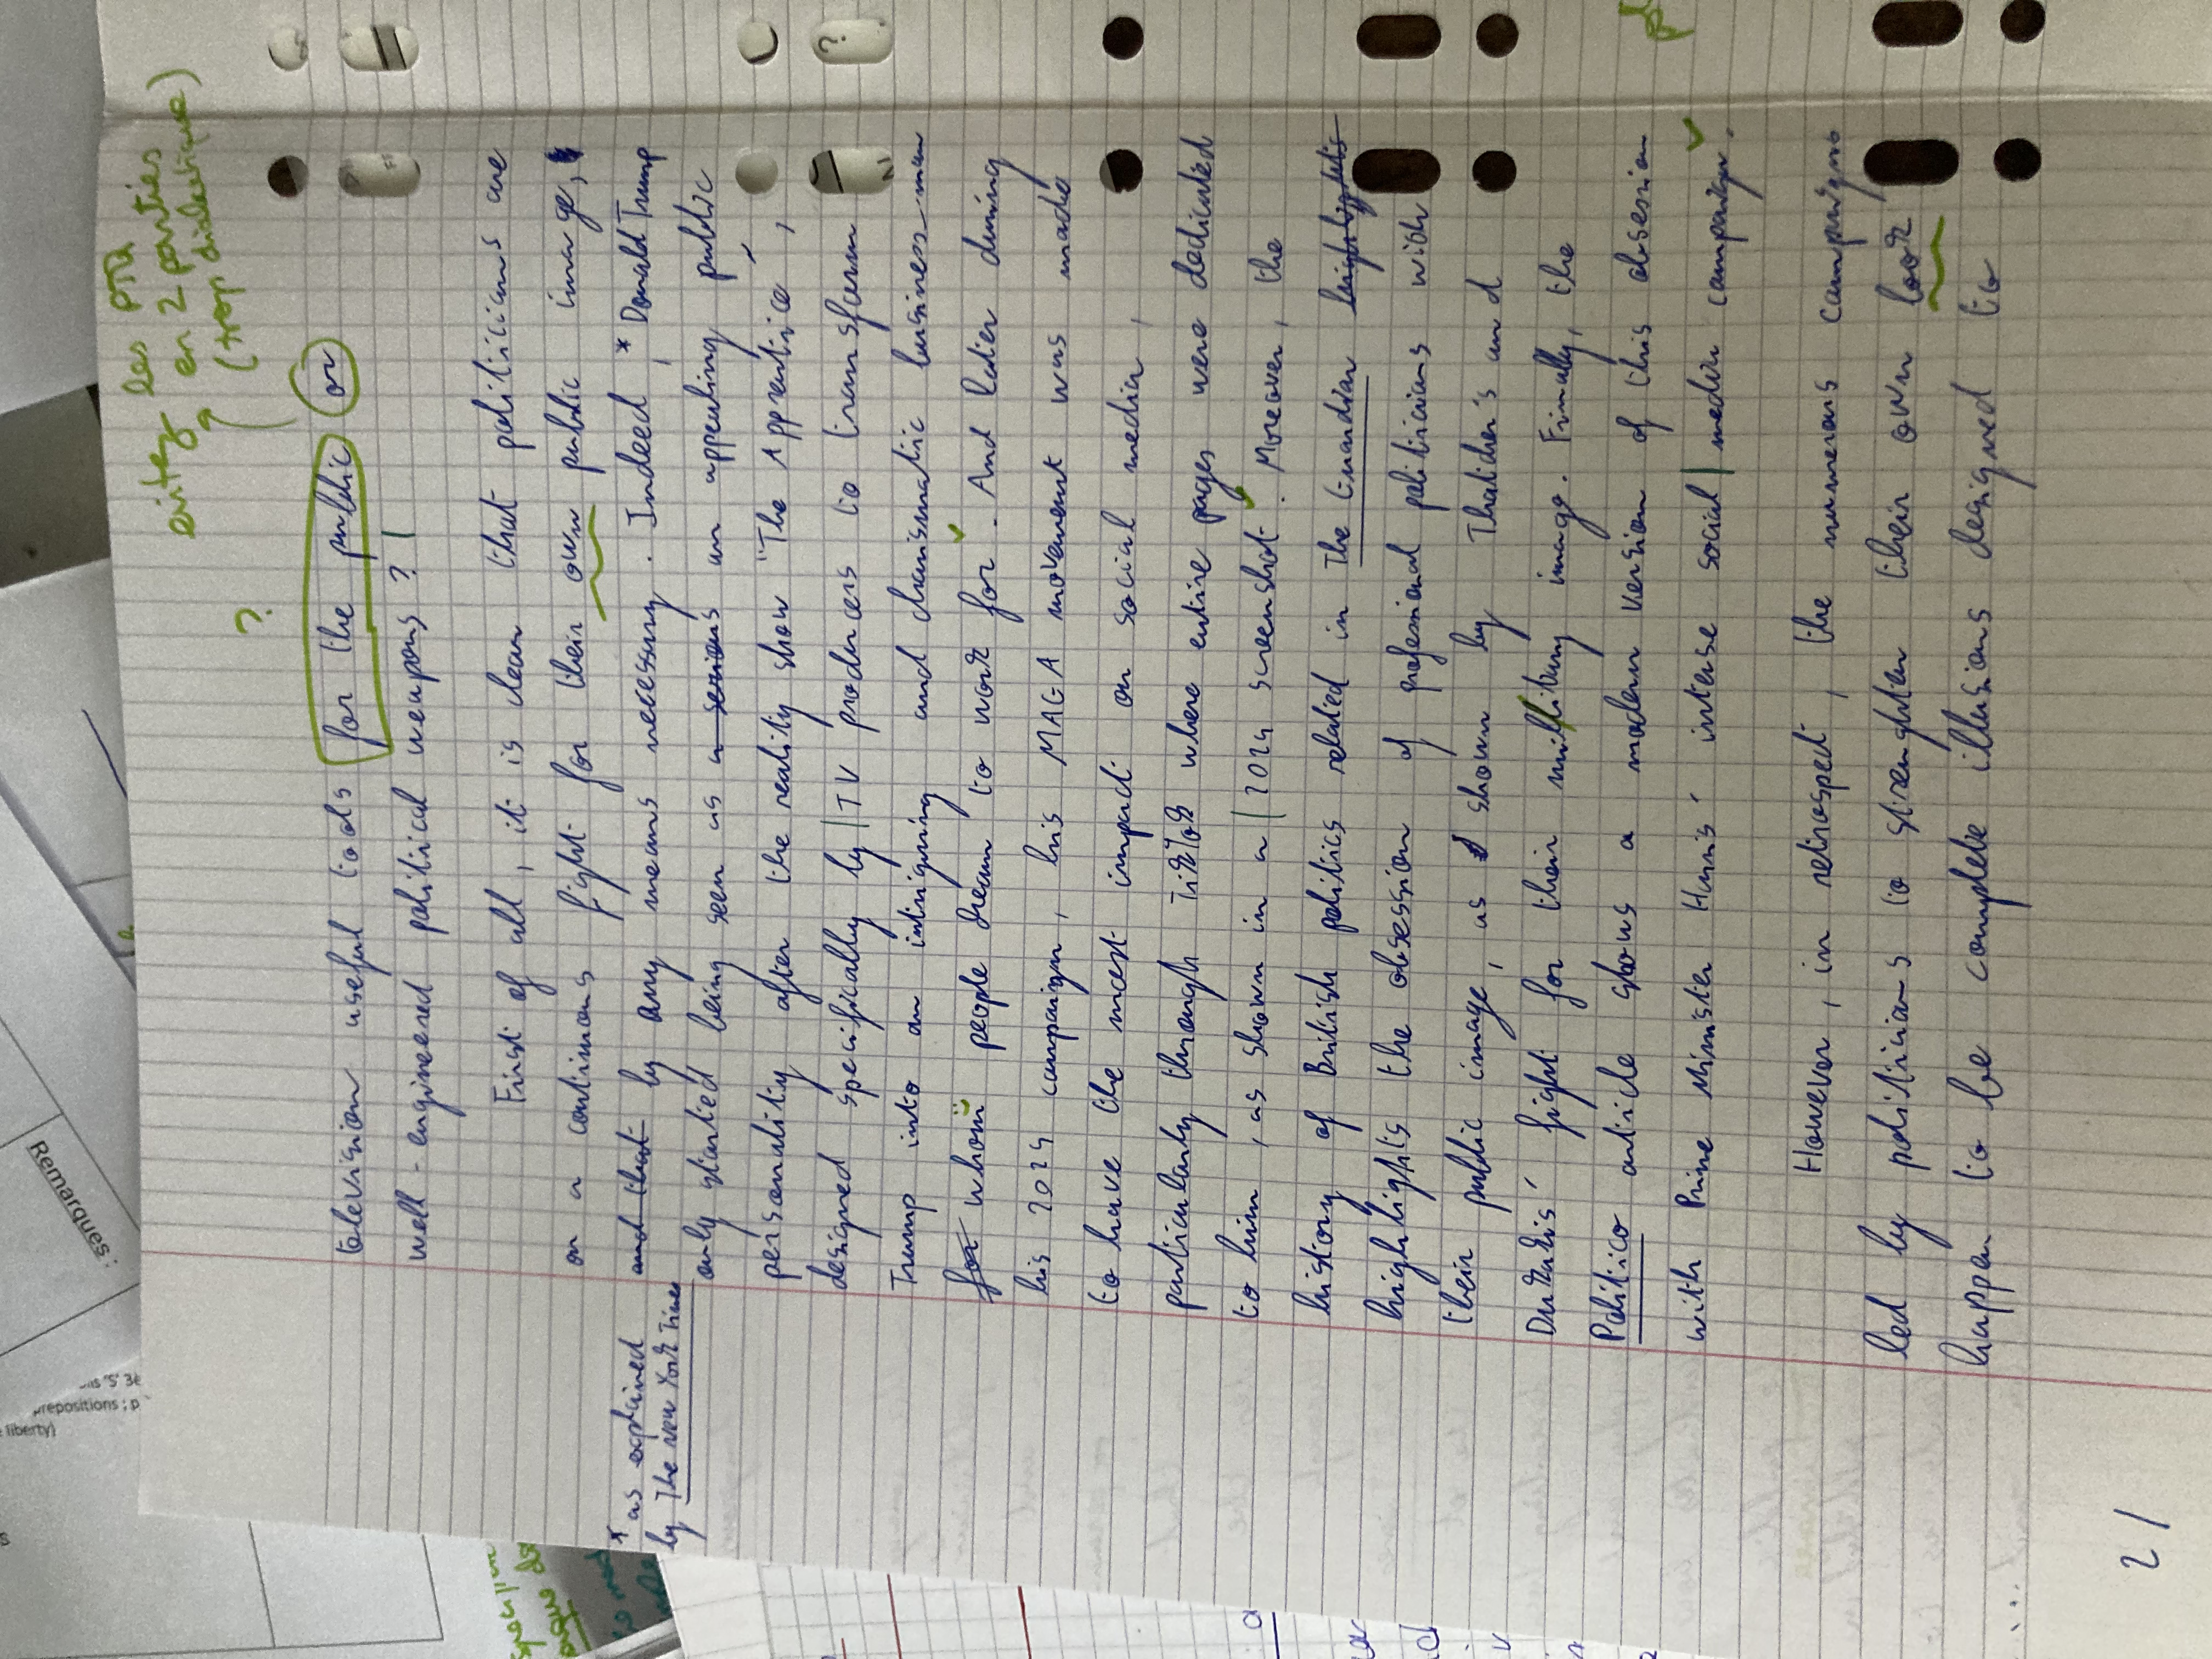 eviter les PTQ
en 2 parties
(trop dialectique)
?
television useful tools for the public or
well-engineered political weapons ?
First of all, it is clear that politicians are
on a continuous fight for their own public image,
and that by any means necessary. Indeed, * Donald Trump
* as explained
by The New York Times
only started being seen as a serious an appealing public
personality after the reality show "The Apprentice",
designed specifically by TV producers to transform
Trump into an intriguing and charismatic businessman
for whom people dream to work for. And later during
his 2024 campaign, his MAGA movement was made
to have the most impact on social media,
particularly through TikTok where entire pages were dedicated
to him, as shown in a 2024 screenshot. Moreover, the
history of British politics related in The Guardian highlights
highlights the obsession of profesional politicians with
their public image, as shown by Thatcher's and
Dukakis' fight for their millitary image. Finally, the
Politico article shows a modern version of this obsession
with Prime Minister Harris' intense social media campaign.
However, in retrospect, the numerous campaigns
led by politicians to strenghten their own look
happen to be complete illusions designed to
2/
Remarques :
prepositions ; p
liberty)